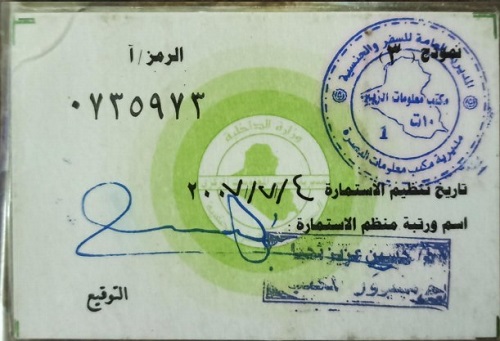 نموذج (٣)
الرمز/أ
٠٧٣٥٩٧٣
المديرية العامة للسفر والجنسية
مكتب معلومات
١٠ت
1
مديرية مكتب معلومات البصرة
وزارة الداخلية
تاريخ تنظيم الاستمارة
اسم ورتبة منظم الاستمارة
حسين عزيز
التوقيع